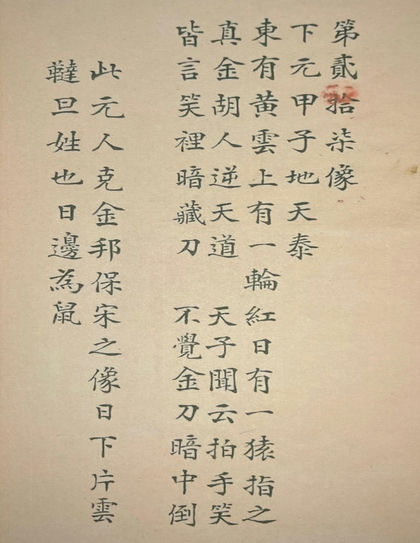 第貳拾柒像
下元甲子地天泰
東有黃雲上有一輪紅日有一猿指之
真金胡人逆天道　天子聞云拍手笑
皆言笑裡暗藏刀　不覺金刀暗中倒
此元人克金邦保宋之像日下片雲
韃旦姓也日邊為鼠